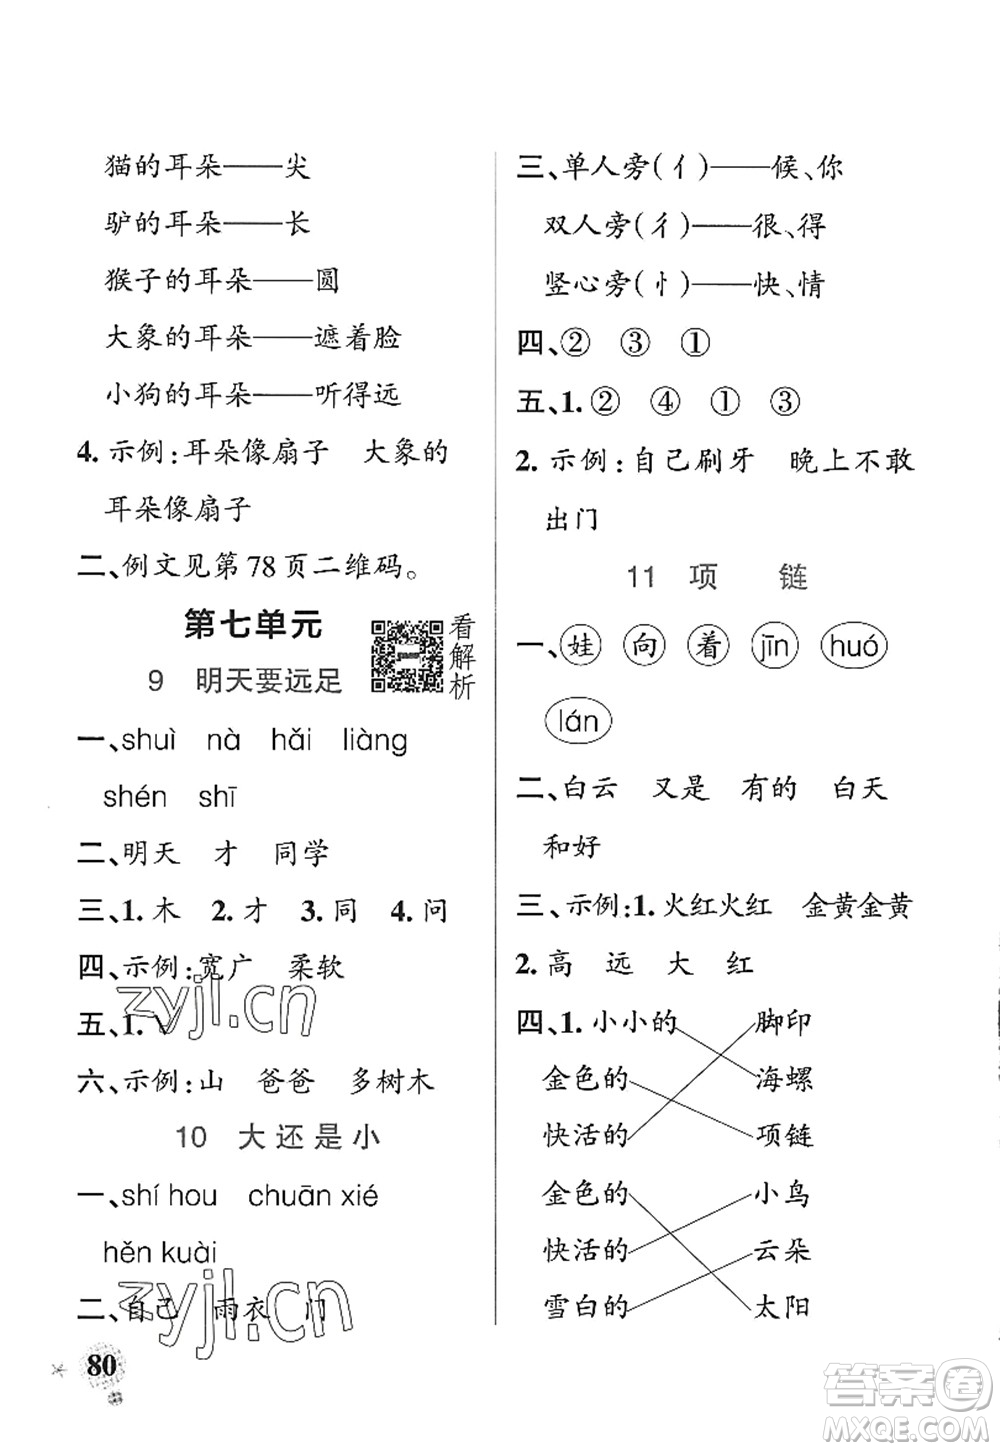 猫的耳朵——尖
驴的耳朵——长
猴子的耳朵——圆
大象的耳朵——遮着脸
小狗的耳朵——听得远
4. 示例:耳朵像扇子 大象的
耳朵像扇子
二、例文见第78页二维码。
第七单元
看解析
9 明天要远足
一、shuì nà hǎi liàng
shén shī
二、明天 才 同学
三、1. 木 2. 才 3. 同 4. 问
四、示例:宽广 柔软
五、1. √
六、示例:山 爸爸 多树木
10 大还是小
一、shí hou chuān xié
hěn kuài
二、自己 雨衣 门
80
三、单人旁(亻)——候、你
双人旁(彳)——很、得
竖心旁(忄)——快、情
四、② ③ ①
五、1. ② ④ ① ③
2. 示例:自己刷牙 晚上不敢
出门
11 项链
一、娃 向 着 jīn huó
lán
二、白云 又是 有的 白天
和好
三、示例:1. 火红火红 金黄金黄
2. 高 远 大 红
四、1. 小小的 脚印
金色的 海螺
快活的 项链
金色的 小鸟
快活的 云朵
雪白的 太阳
zyjl.cn
zyjl.cn
答案卷
MXQE.COM